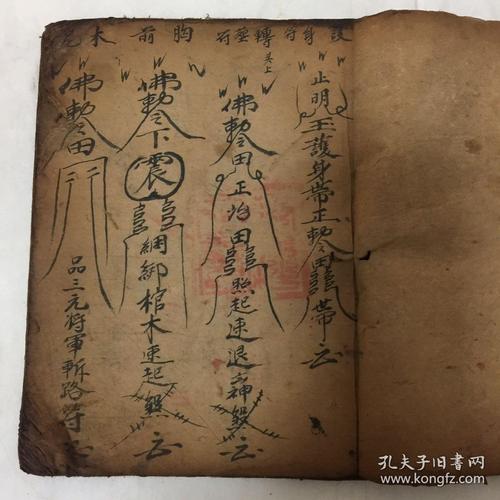 護身符 轉壓符 胸前 木
头上
止明王護身帶正勅令田帶云
佛勅令田正治田照起速退神毀云
佛勅令下震綑綁棺木速起煞云
佛勅令田
品三元将軍斬路符云
孔夫子旧书网
www.kongfz.com